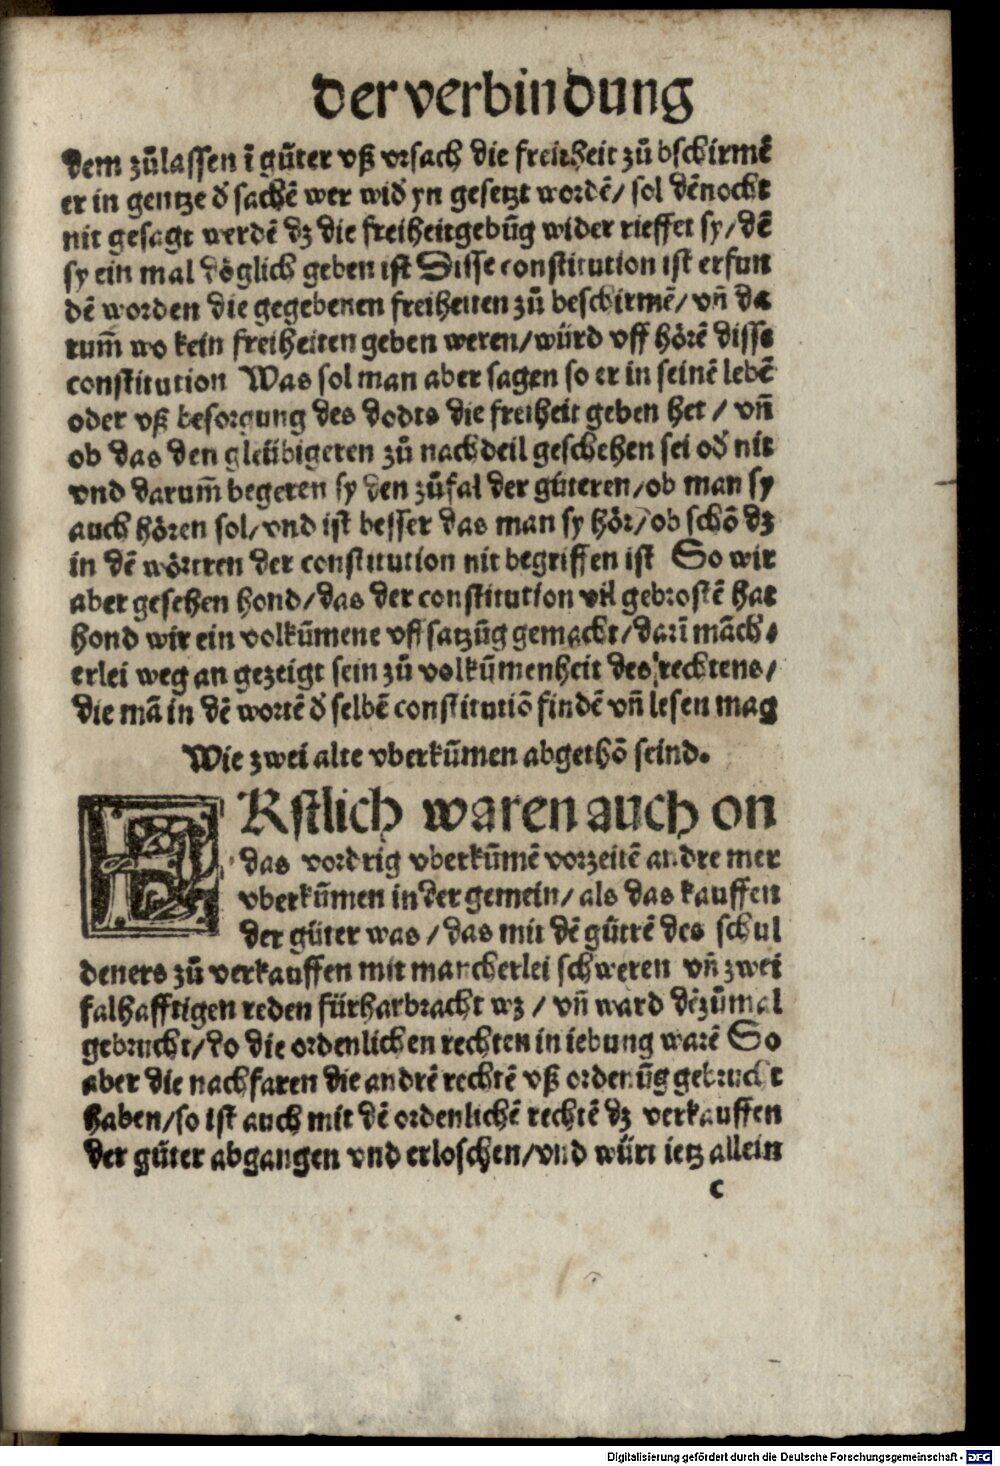 der verbindung
dem zůlassen ī gůter vß vrsach die freiheit zů bschirmē
er in gentze d̓ sachē wer wid̓ yn gesetzt wordē/ sol dēnocht
nit gesagt werdē dz die freiheitgebūg wider rieffet sy/ dē
sy ein mal döglich geben ist Disse constitution ist erfun
dē worden die gegebenen freiheiten zů beschirmē/ vn̄ da
rum̄ wo kein freiheiten geben weren/ würd vff hörē disse
constitution Was sol man aber sagen so er in seinē lebē
oder vß besorgung des dodts die freiheit geben het / vn̄
ob das den gleübigeren zů nachdeil geschehen sei od̓ nit
vnd darum̄ begeren sy den zůfal der güteren/ ob man sy
auch hören sol/ vnd ist besser das man sy hör/ ob schō dz
in dē wörtren der constitution nit begriffen ist So wir
aber gesehen hond/ das der constitution vil gebrostē hat
hond wir ein volkūmene vff satzūg gemacht/ darī māch⸗
erlei weg an gezeigt sein zů volkūmenheit des rechtens/
die mā in dē wortē d̓ selbē constitutiō findē vn̄ lesen mag
Wie zwei alte vberkūmen abgethō seind.
ERstlich waren auch on
das vordrig vberkūmē vorzeitē andre mer
vberkūmen in der gemein/ als das kauffen
der güter was / das mit dē gütrē des schul
deners zů verkauffen mit mancherlei schweren vn̄ zwei
falhafftigen reden fürharbracht wz / vn̄ ward dēzůmal
gebrucht/ do die ordenlichen rechten in iebung warē So
aber die nachfaren die andrē rechtē vß ordenūg gebrucht
haben/ so ist auch mit dē ordenlichē rechtē dz verkauffen
der güter abgangen vnd erloschen/ vnd würt ietz allein
c
Digitalisierung gefördert durch die Deutsche Forschungsgemeinschaft - DFG